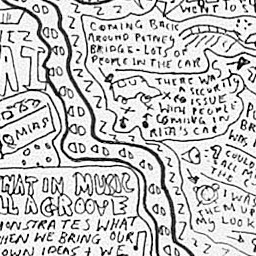 WENT TO
COMING BACK
AROUND PUTNEY
BRIDGE - LOTS OF
PEOPLE IN THE CAR
THERE WAS
A SECURITY
ISSUE
WITH PEOPLE
COMING IN
RITA'S CAR
COULD
THE C
I WAS
THEM UP
MY LOOK
THAT IN MUSIC
ALL A GROOVE
MONSTRATES WHAT
WHEN WE BRING OUR
OWN IDEAS + WE